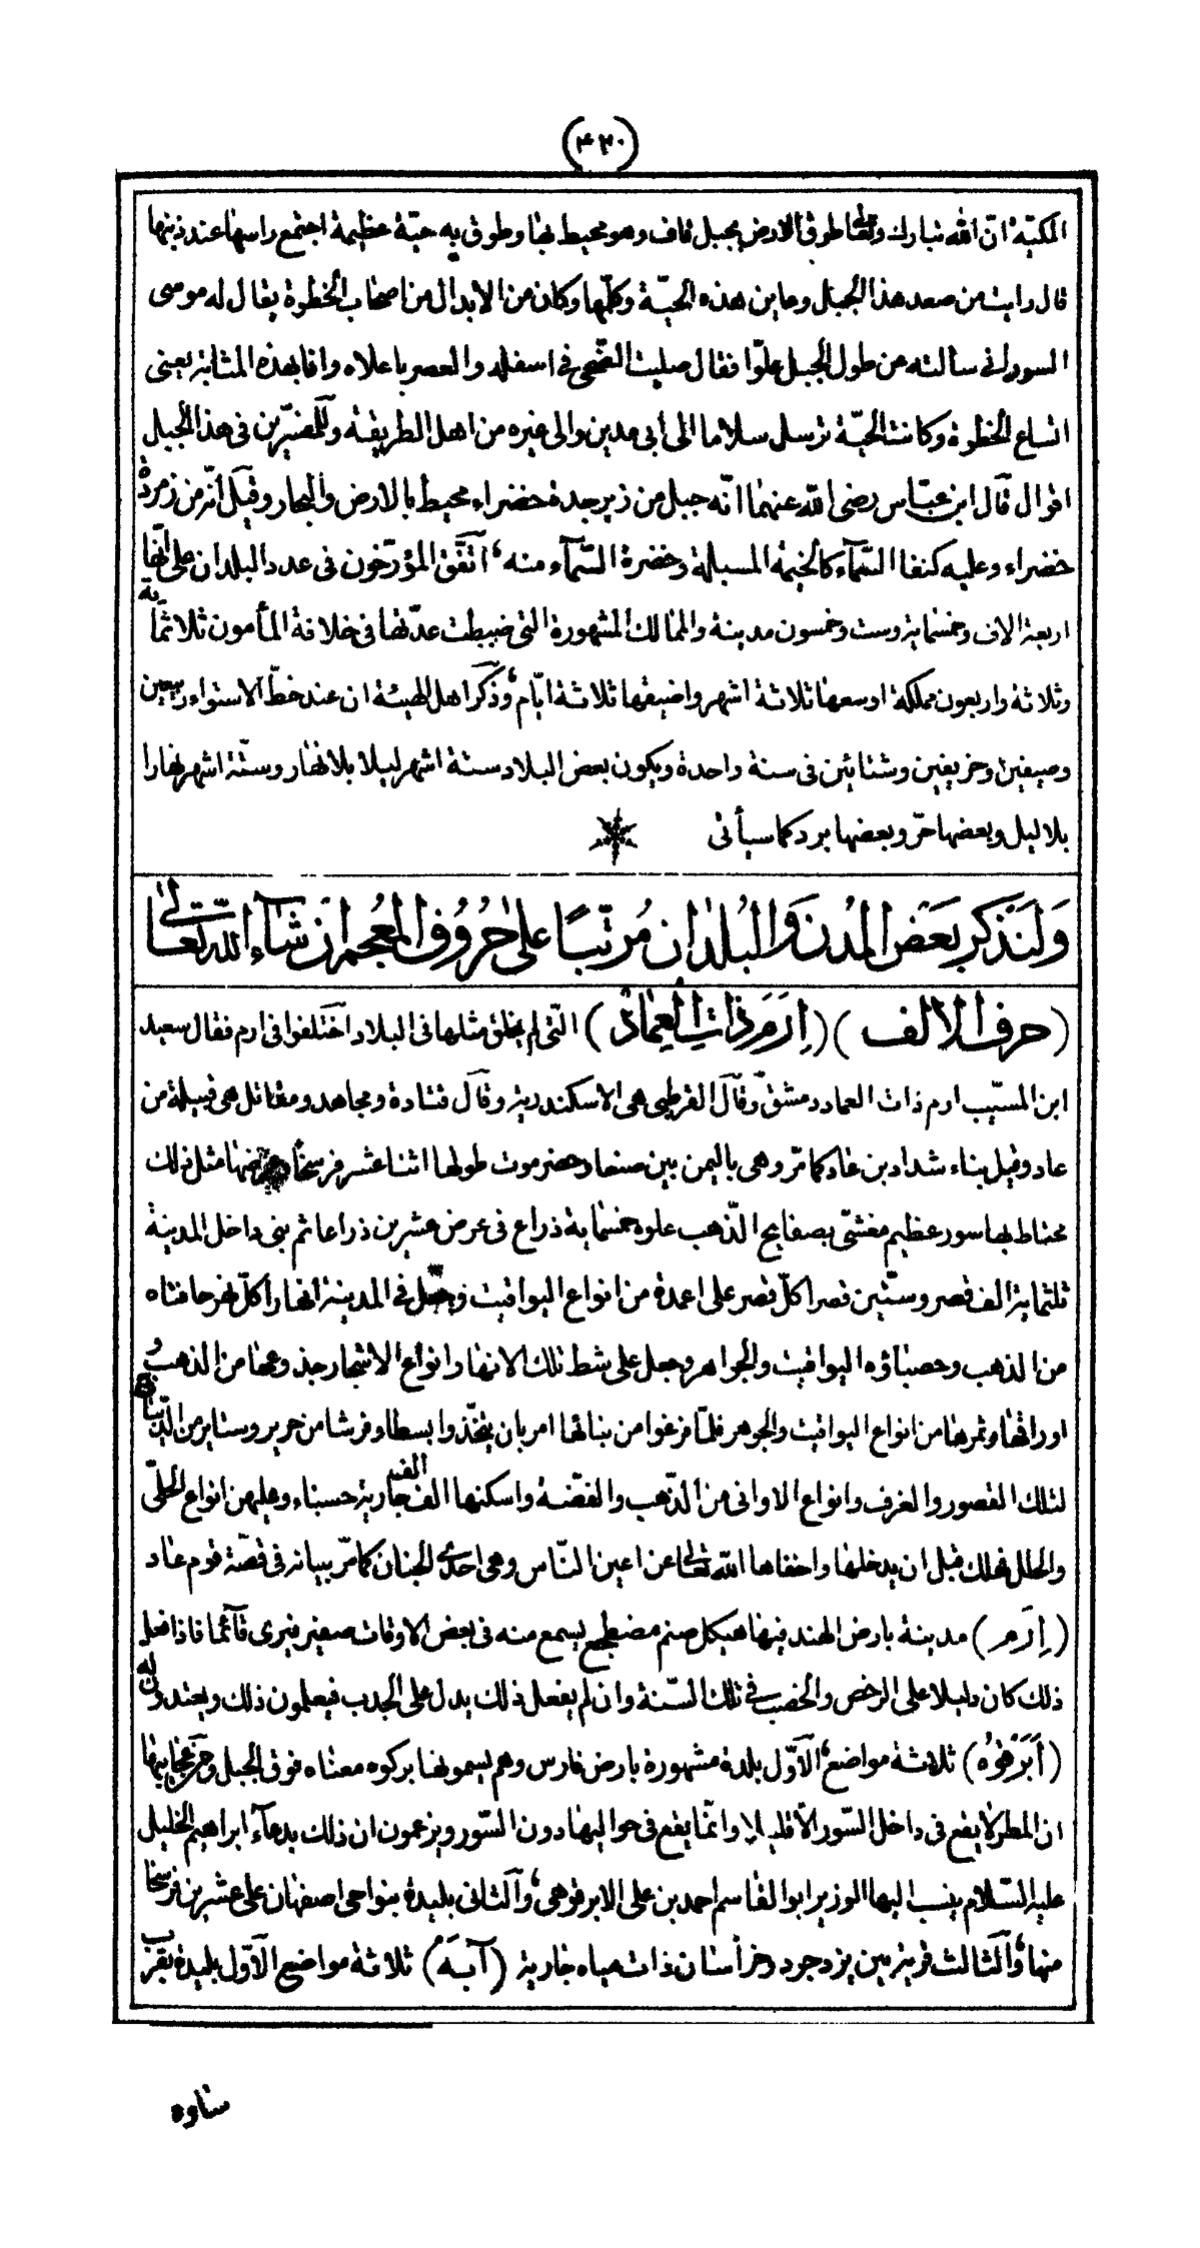 (۴۳۰)
المكيّة انّ الله تبارك وتعالى طوق الارض بجبل قاف وهو محيط بها وطوق به حيّة عظيمة اجتمع راسها عند ذنبها
قال رايت من صعد هذا الجبل وعاين هذه الحيّة وكلّمها وكان من الابدال من اصحاب الخطوة يقال له موسى
السدرانى سالته عن طول الجبل علوّا فقال صليت الضّحى فى اسفله والعصر باعلاه وانا بهذه المثابة يعنى
اتساع الخطوة وكانت الحيّة ترسل سلاما الى أبى مدين والى غيره من اهل الطريقة وللمفسّرين فى هذا الجبل
اقوال قال ابن عبّاس رضى الله عنهما انّه جبل من زبرجدة خضراء محيط بالارض والبحار وقيل أنّه من زمردة
خضراء وعليه كنفا السّمآء كالخيمة المسبلة وخضرة السّمآء منه، اتّفق المؤرّخون فى عدد البلدان على أنّها
اربعة الاف وخمسماية وست وخمسون مدينة والممالك المشهورة التى ضبطت عدّتها فى خلافة المأمون ثلاثماية
وثلاثة واربعون مملكة اوسعها ثلاثة اشهر واضيقها ثلاثة ايّام، وذكر اهل الهيئة ان عند خطّ الاستواء ربيعين
وصيفين وخريفين وشتائين فى سنة واحدة ويكون بعض البلاد ستة اشهر ليلا بلا نهار وستّة اشهر نهارا
بلا ليل وبعضها حرّ وبعضها برد كما سيأتى
وَلنَذكر بَعَض المُدن وَالبُلدان مُرتّبًا عَلى حُرُوف المُعجم ان شآء الله تَعالى
(حرف الالف) (اِرَمَ ذَاتِ العِمَادْ) التّى لم يخلق مثلها فى البلاد اختلفوا فى ارم فقال سعيد
ابن المسيّب ارم ذات العماد دمشق وقال القرطبى هى الاسكندرية وقال قتادة ومجاهد ومقاتل هى قبيلة من
عاد وقيل بناء شداد بن عاد كما مرّ وهى باليمن بين صنعا وحضرموت طولها اثنا عشر فرسخا وعرضها مثل ذلك
محتاط بها سور عظيم مغشّى بصفايح الذّهب علوه خمسماية ذراع فى عرض عشرين ذراعا ثم بنى داخل المدينة
ثلثماية الف قصر وستّين قصرا كلّ قصر على اعمدة من انواع اليواقيت وجعل فى المدينة أنهارا كلّ نهر حافتاه
من الذهب وحصباؤه اليواقيت والجواهر وجعل على شط تلك الانهار انواع الاشجار جذوعها من الذهب و
اوراقها وثمرها من انواع اليواقيت والجوهر فلمّا فرغوا من بنائها امر بان يتخّذوا بسطا وفرشا من حرير وستاير من الدّيباج
لتلك القصور والغرف وانواع الاوانى من الذّهب والفضّة واسكنها الف الف جارية حسناء وعليهن انواع الحلىّ
والحلل فهلك قبل ان يدخلها واخفاها الله تعالى عن اعين النّاس وهى احدى الجنان كما مرّ بيانه فى قصّة قوم عاد
(اِرَمر) مدينة بارض الهند فيها هيكل صنم مضطجع يسمع منه فى بعض الاوقات صفير فيرى قآئما فاذا فعل
ذلك كان دليلا على الرخص والخصب فى تلك السّنة وان لم يفعل ذلك يدل على الجدب فيعلمون ذلك ويعتدون له
(اَبَرقوُه) ثلاثة مواضع، الأوّل بلدة مشهورة بارض فارس وهم يسمونها بركوه معناه فوق الجبل ومن عجايبها
ان المطر لا يقع فى داخل السّور الّا قليلا وانّما يقع فى حواليها دون السّور ويزعمون ان ذلك بدعآء ابراهيم الخليل
عليه السّلام ينسب اليها الوزير ابو القاسم احمد بن على الابرقوهى، والثانى بليدة بنواحى اصفهان على عشرين فرسخا
منها، والثالث قرية بين يزدجرد وخراسان ذات مياه جارية (آبه) ثلاثة مواضع الأوّل بليدة بقرب
ساوه